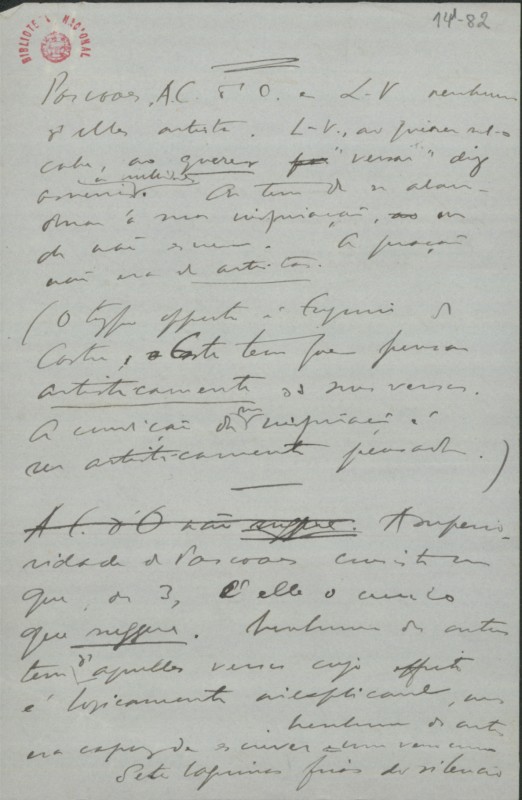 BIBLIOTECA NACIONAL
14¹-82
Pascoaes, A.C. d'O. e L-V nenhum
d'elles artista. L-V., ao
cabe, ao querer "versar" diz
A tem de se aban-
donar á sua inspiração, ou
de não escrever. A geração
não era de artistas.
(O typo opposto é Eugenio de
Castro, este tem que pensar
artisticamente os seus versos.
A condição da inspiração é
ser artisticamente pensada.)
A C. d'O não suggere. A superio-
ridade de Pascoaes consiste em
que, dos 3, é elle o unico
que suggere. Nenhum dos outros
tem d'aquelles versos cujo effeito
é logicamente inexplicavel,
nenhum dos outros
era capaz de escrever um verso como
Sete lagrimas frias do silencio